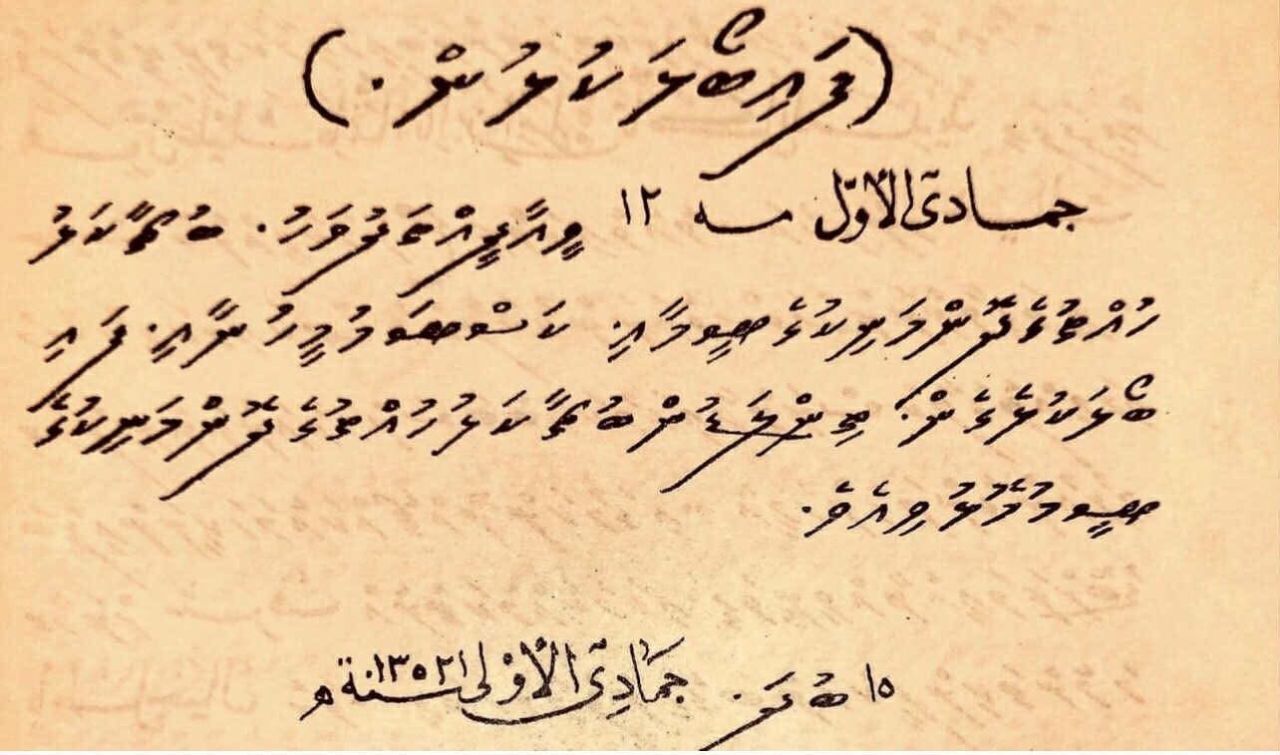 (ފައިބޯޅަ ކުޅުން.)
جمادى الأول سنة ١٢ ވީއާދީއްތަދުވަހު. ބުޗާކަޅު
ހުއްޓުގެދޮންމަނިކުގެޓީމާއި. ކަސްޓަމުމީހުންނާއި. ފައި
ބޯޅަކުޅެގެން. ތިންލަނޑުން ބުޗާކަޅުހުއްޓުގެދޮންމަނިކުގެ
ޓީމުމޮޅުވިއެވެ.
١٥ ބުދަ. جمادى الأولى سنة ١٣٥٢ هـ